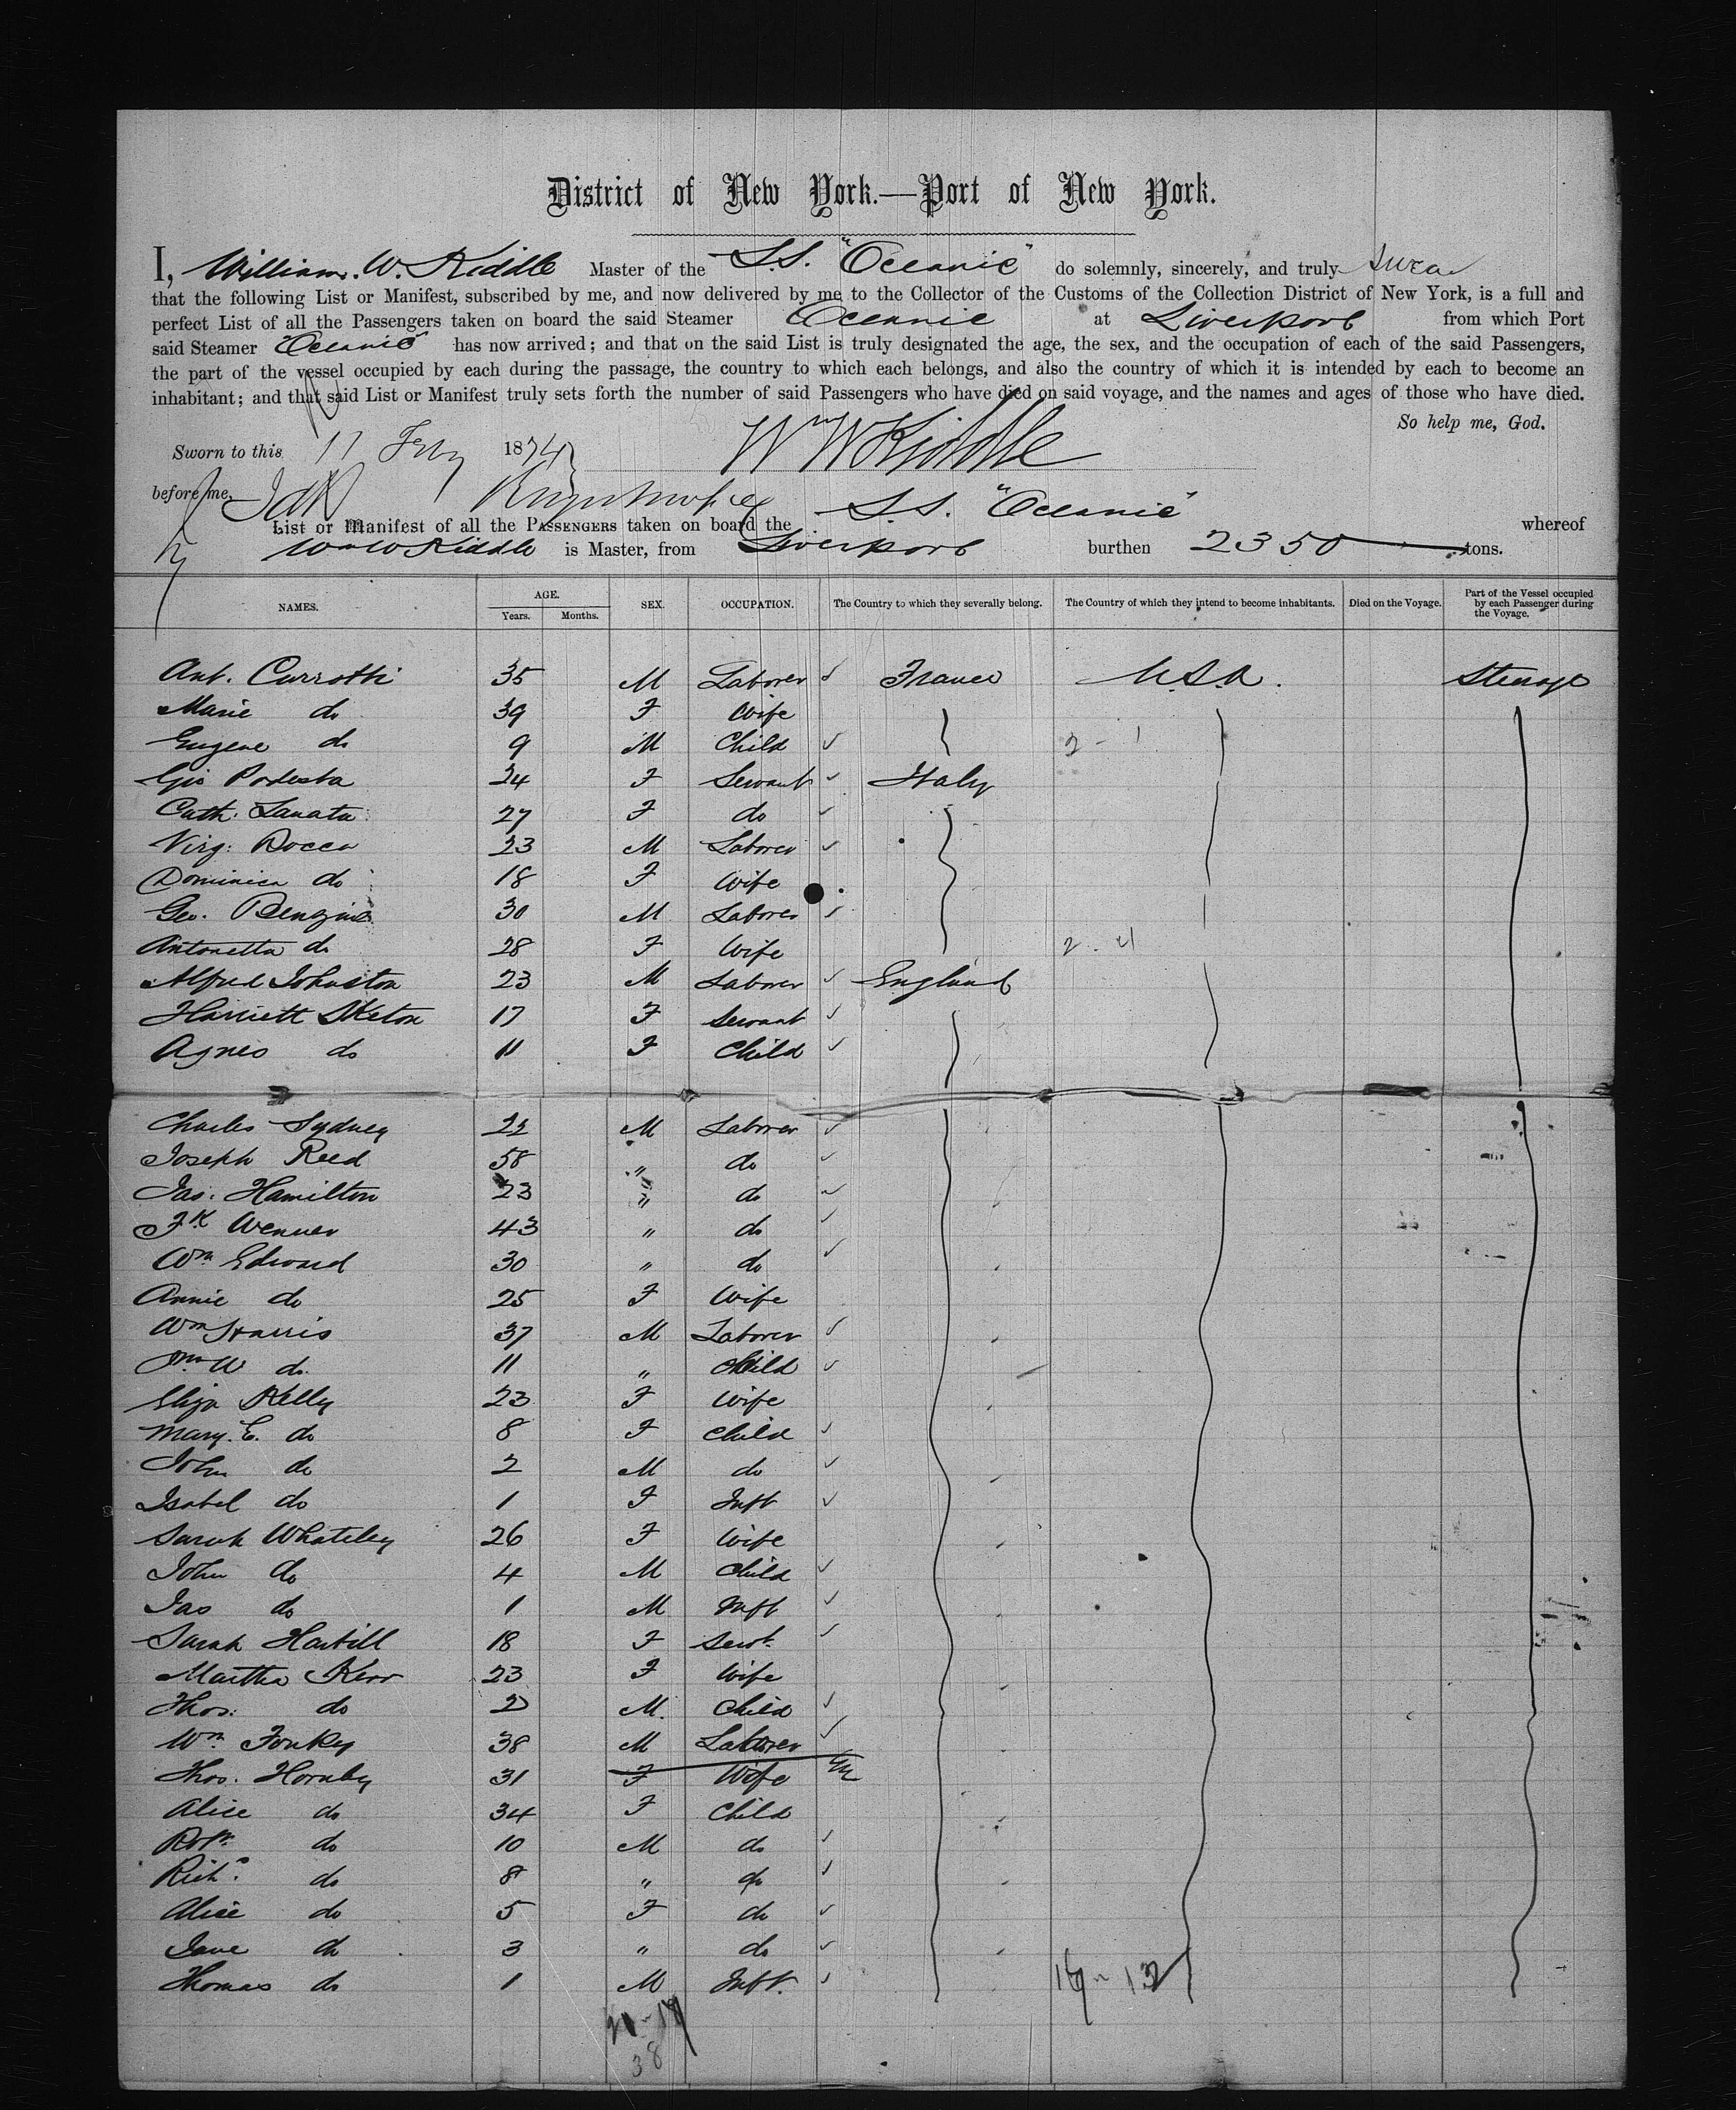 District of New York.—Port of New York.
I, William. W. Kiddle Master of the S.S. "Oceanic" do solemnly, sincerely, and truly swear
that the following List or Manifest, subscribed by me, and now delivered by me to the Collector of the Customs of the Collection District of New York, is a full and
perfect List of all the Passengers taken on board the said Steamer Oceanic at Liverpool from which Port
said Steamer "Oceanic" has now arrived; and that on the said List is truly designated the age, the sex, and the occupation of each of the said Passengers,
the part of the vessel occupied by each during the passage, the country to which each belongs, and also the country of which it is intended by each to become an
inhabitant; and that said List or Manifest truly sets forth the number of said Passengers who have died on said voyage, and the names and ages of those who have died.
So help me, God.
Sworn to this 11 Feby 1874 Wm W Kiddle
before me,
List or Manifest of all the PASSENGERS taken on board the S.S. "Oceanic" whereof
Wm W Kiddle is Master, from Liverpool burthen 2350 tons.
NAMES. AGE. Years. Months. SEX. OCCUPATION. The Country to which they severally belong. The Country of which they intend to become inhabitants. Died on the Voyage. Part of the Vessel occupied by each Passenger during the Voyage.
Ant. Currotti 35 M Laborer France U.S.A. Steerage
Marie do 39 F Wife
Eugene do 9 M Child 2 - 1
Gio Podesta 24 F Servant Italy
Cath. Lanata 27 F do
Virg: Rocca 23 M Laborer
Dominica do 18 F Wife
Geo. 30 M Laborer
Antonetta do 28 F Wife 2 - 4
Alfred Johnston 23 M Laborer England
Harriett Sketon 17 F Servant
Agnes do 11 F Child
Charles Sydney 22 M Laborer
Joseph Reed 58 " do
Jas. Hamilton 23 " do
Fk Wenner 43 " do
Wm Edward 30 " do
Annie do 25 F Wife
Wm Harris 37 M Laborer
W do. 11 " Child
Eliza Kelly 23 F Wife
Mary. E. do 8 F Child
John do 2 M do
Isabel do 1 F Inft
Sarah Whateley 26 F Wife
John do 4 M Child
Jas do 1 M Inft
Sarah Hartill 18 F Servt.
Martha Kerr 23 F Wife
Thos. do 2 M. Child
Wm Forkey 38 M Laborer
Thos. Hornby 31 F Wife
Alice do 34 F Child
Robt. do 10 M do
Richd. do 8 " do
Alice do 5 F do
Jane do 3 " do
Thomas do 1 M Inft.
38